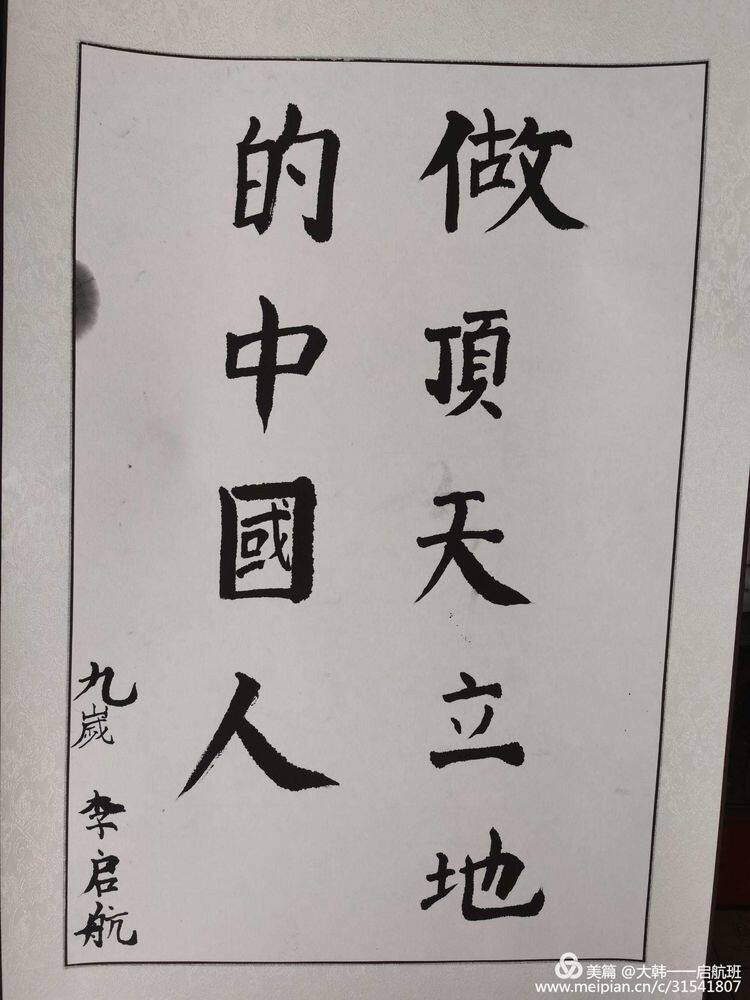 做頂天立地
的中國人
九嵗 李启航
美篇 @大韩——启航班
www.meipian.cn/c/31541807